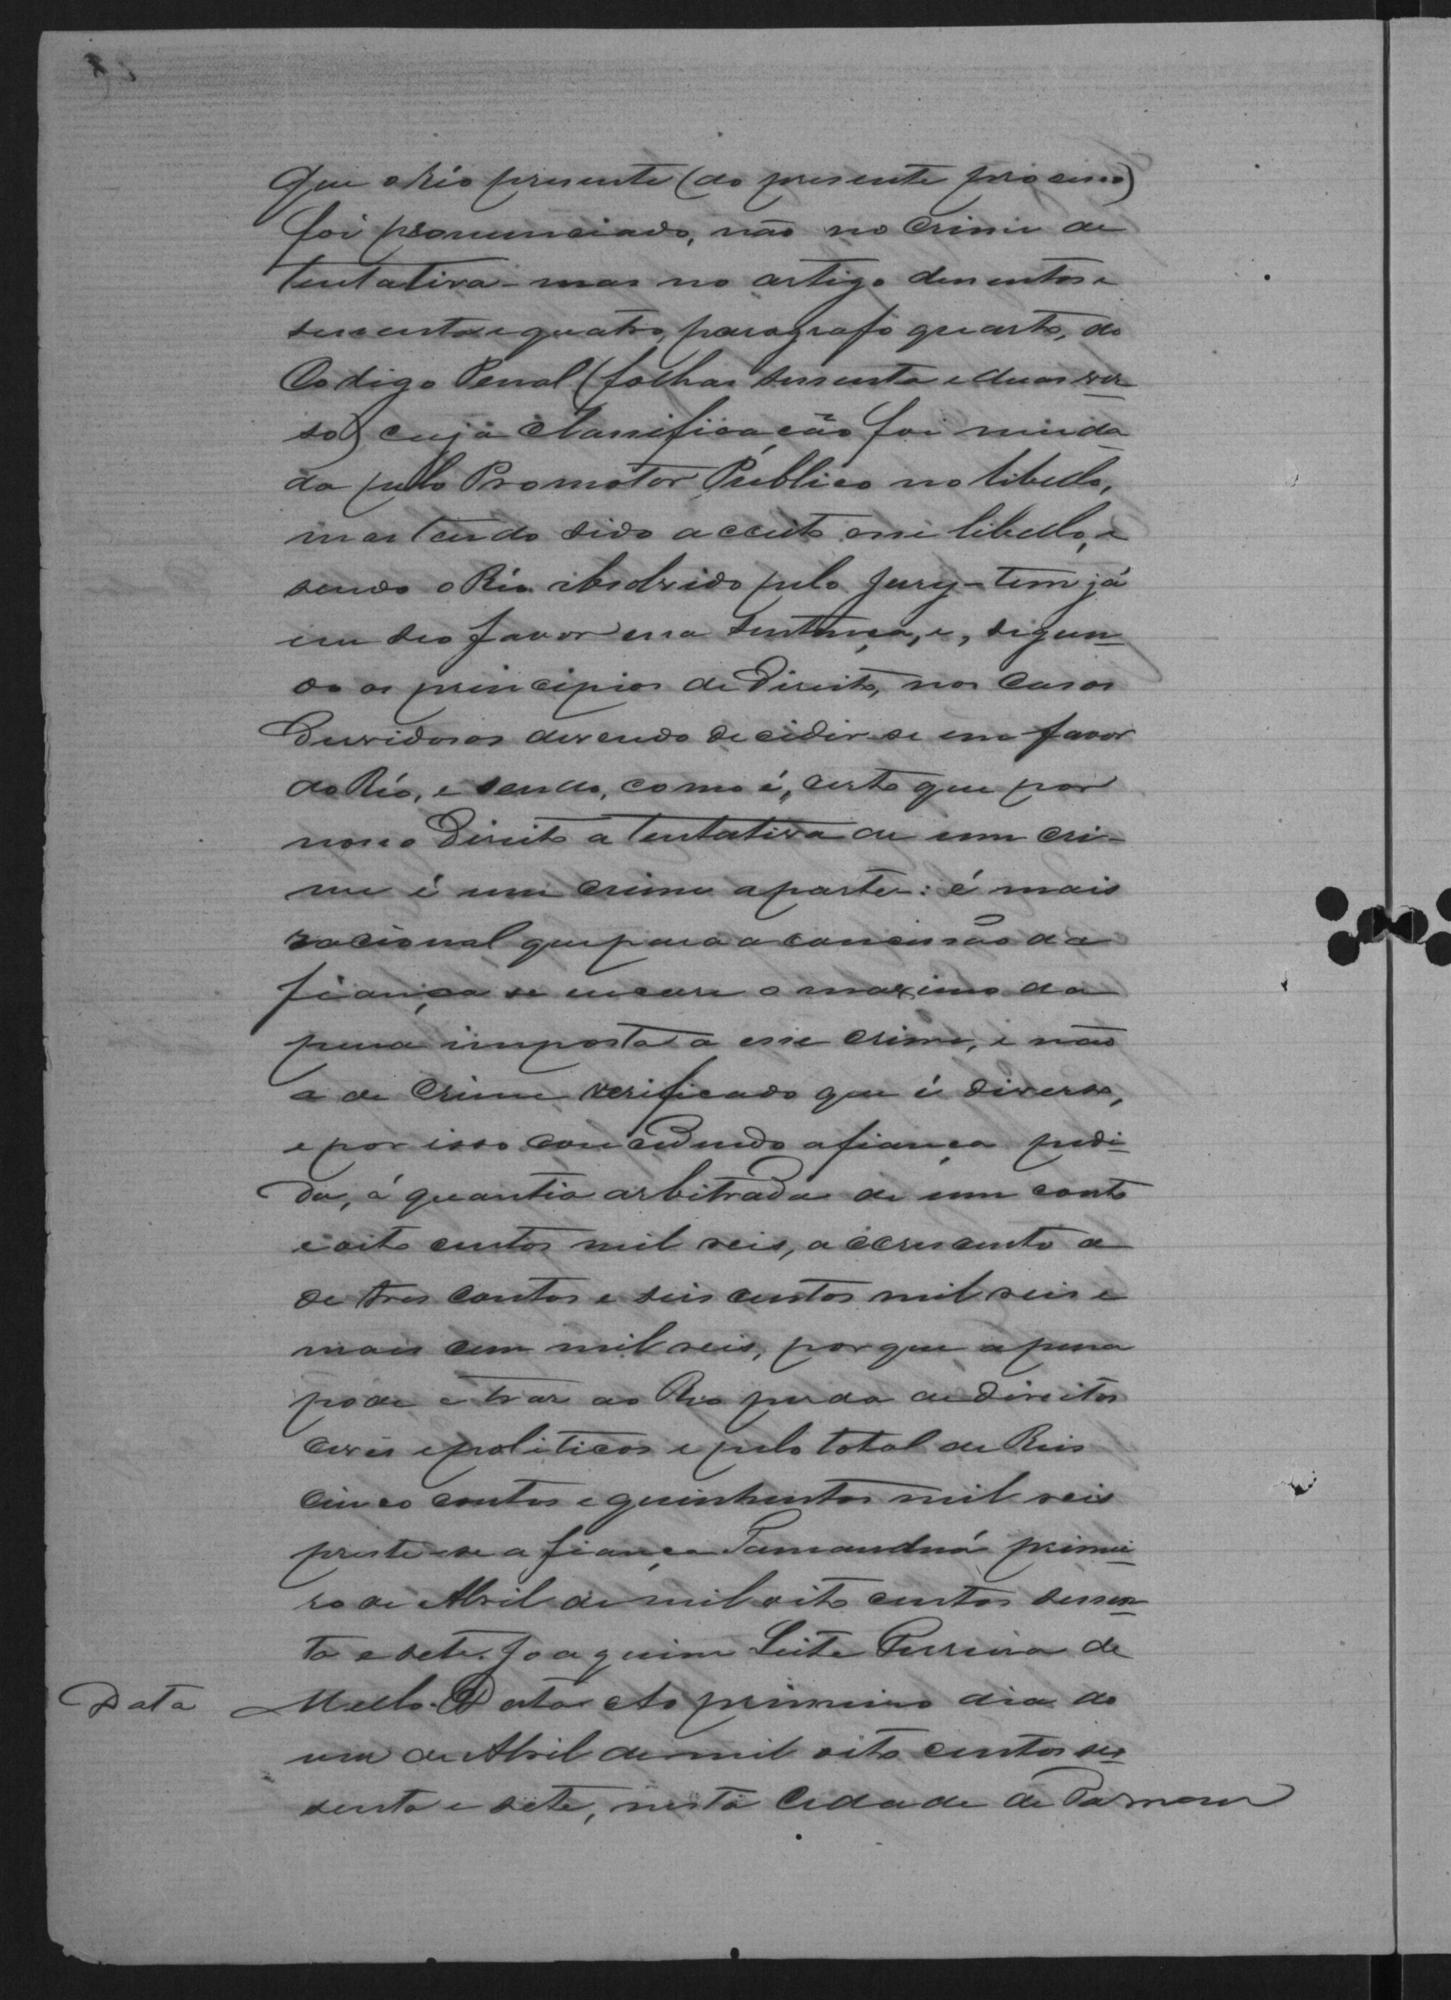 Que o Réo presente (do presente processo)
foi pronunciado, não no crime de
tentativa - mas no artigo duzentos e
sessenta e quatro, paragrafo quarto, do
Codigo Penal (folhas sessenta e duas ver-
so) cuja classificação foi muda-
da pelo Promotor Público no libello,
mas tendo sido acceito esse libello, e
sendo o Réo absolvido pelo Jury - tem já
em seo favor essa Sentença, e, segun-
do os principios de Direito, nos casos
Duvidosos devendo decidir-se em favor
do Réo, e sendo, como é, certo que por
nosso Direito a tentativa de um cri-
me é um crime aparte: é mais
racional que para a concessão da
fiança se encare o maximo da
pena imposta a esse crime, e não
a de crime verificado que é diverso,
e por isso concedendo a fiança pedi-
da, á quantia arbitrada de um conto
e oito centos mil reis, accrescento a
de tres contos e seis centos mil reis e
mais cem mil reis, porque a pena
pode trar ao Reo perda de direitos
civis e politicos e pelo total de Reis
cinco contos e quinhentos mil reis
preste-se a fiança Tamanduá primei-
ro de Abril de mil oito centos sessen-
ta e sete. Joaquim Leite Ferreira de
Data Mello. Data Ao primeiro dia do
mes de Abril de mil oito centos ses-
senta e sete, nesta Cidade de